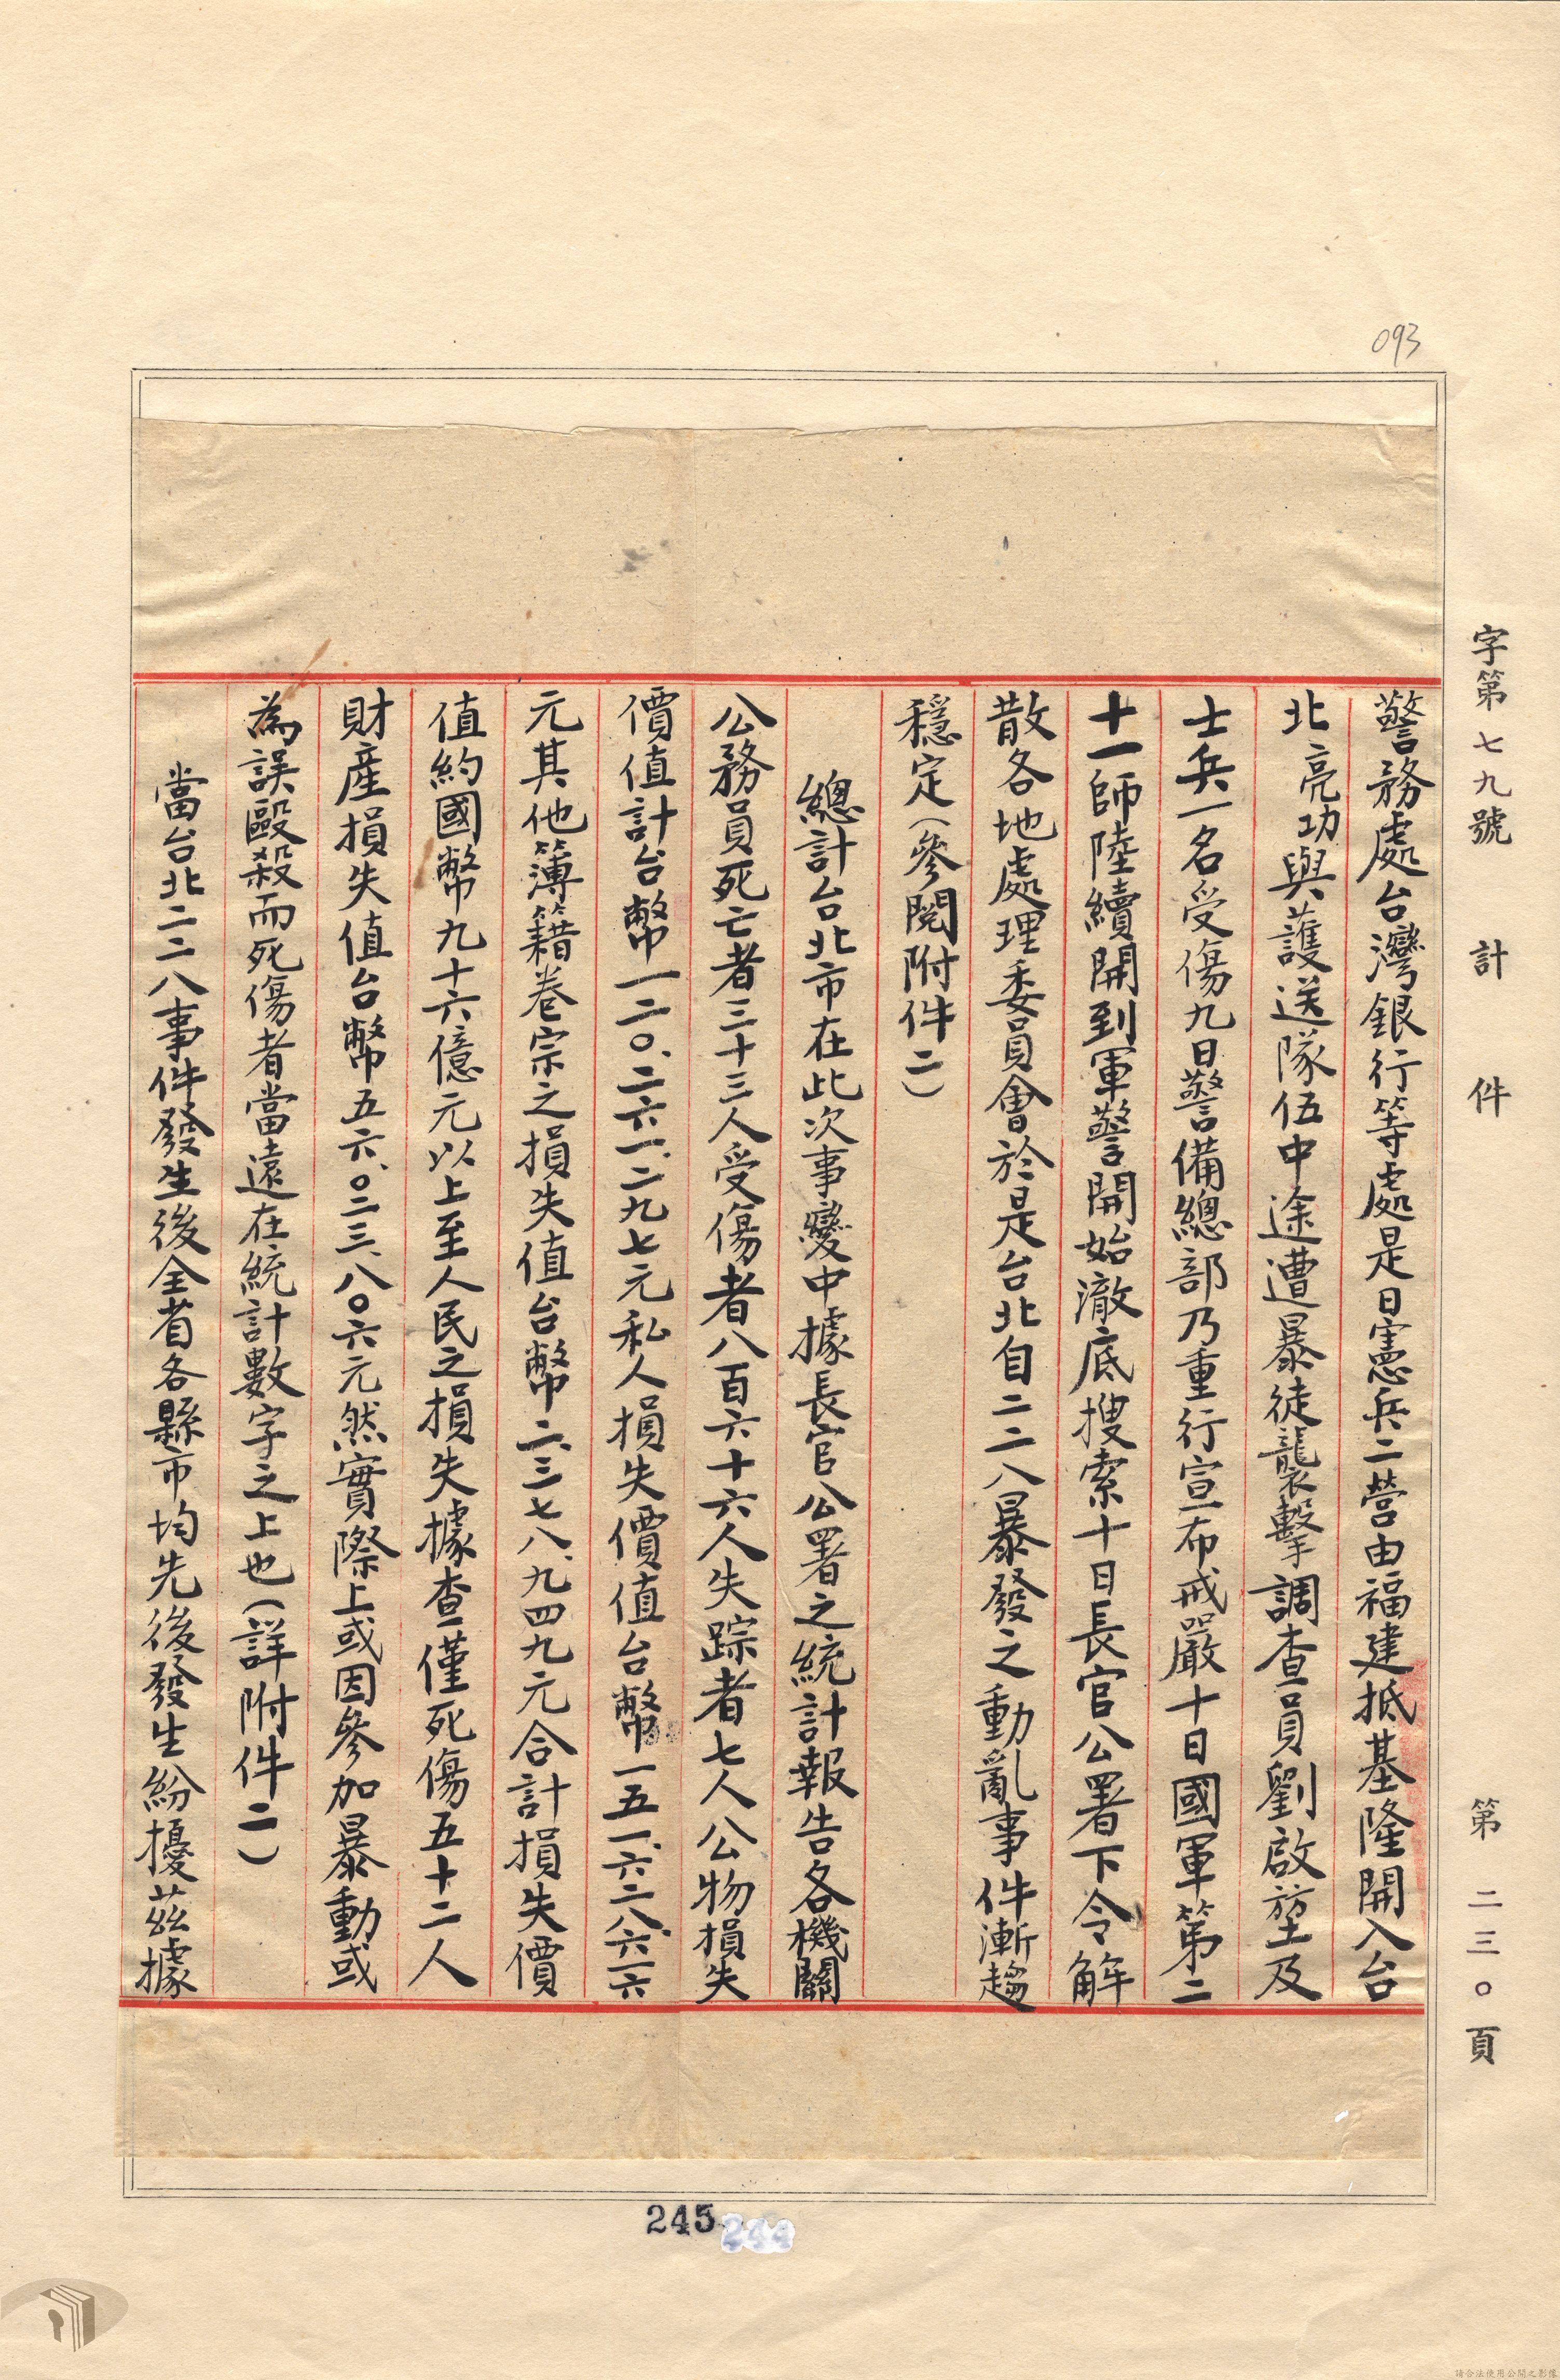 093
字第七九號 計 件 第二三〇頁
警務處台灣銀行等處是日憲兵二營由福建抵基隆開入台
北亮功與護送隊伍中途遭暴徒襲擊調查員劉啟堃及
士兵一名受傷九日警備總部乃重行宣布戒嚴十日國軍第二
十一師陸續開到軍警開始澈底搜索十日長官公署下令解
散各地處理委員會於是台北自二二八暴發之動亂事件漸趨
穩定(參閱附件二)
總計台北市在此次事變中據長官公署之統計報告各機關
公務員死亡者三十三人受傷者八百六十六人失踪者七人公物損失
價值計台幣一二〇、二六一、二九七元私人損失價值台幣一五一、六二八、六一六
元其他簿籍卷宗之損失值台幣二、三七八、九四九元合計損失價
值約國幣九十六億元以上至人民之損失據查僅死傷五十二人
財產損失值台幣五六、〇二三、八〇六元然實際上或因參加暴動或
為誤毆殺而死傷者當遠在統計數字之上也(詳附件二)
當台北二二八事件發生後全省各縣市均先後發生紛擾茲據
245 244
請合法使用公開之影像